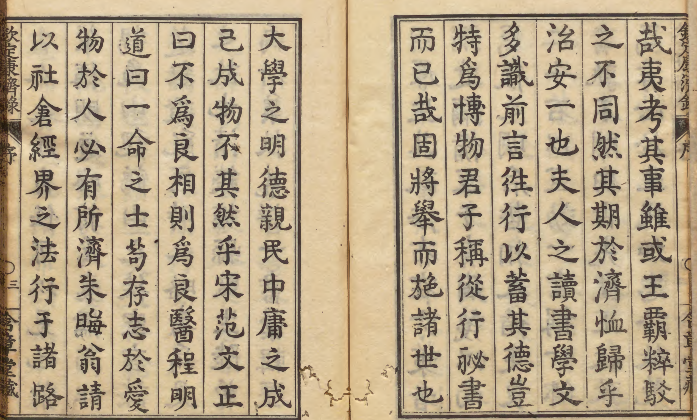 哉夷考其事雖或王覇粹駁
之不同然其期於濟恤歸乎
治安一也夫人之讀書學文
多識前言徃行以蓄其德豈
特爲愽物君子稱從行祕書
而已哉固將舉而施諸世也
大學之明德親民中庸之成
己成物不其然乎宋范文正
曰不爲良相則爲良醫程明
道曰一命之士苟存志於愛
物於人必有所濟朱晦翁請
以社倉經界之法行于諸路
欽定康濟錄
序
三